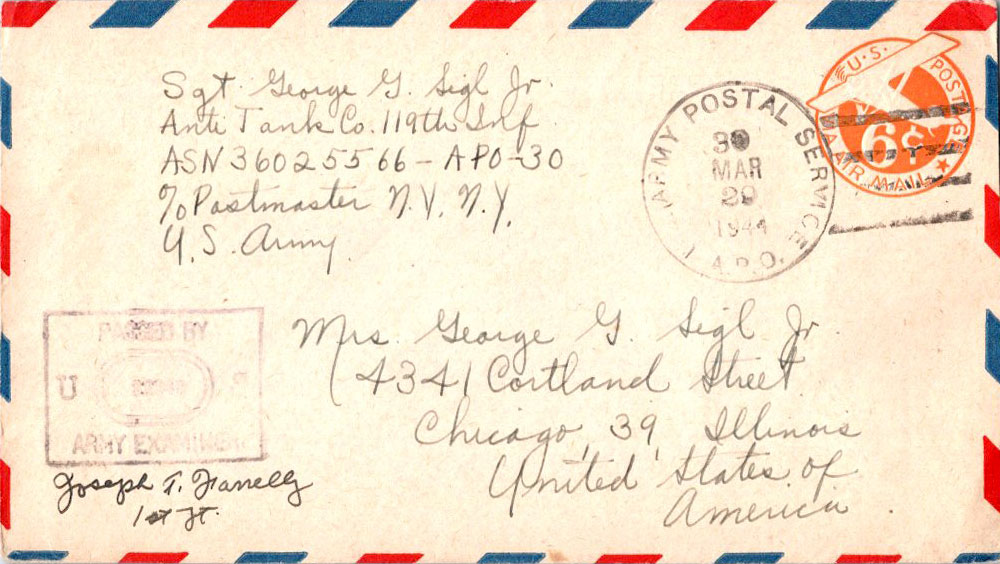 Sgt. George G. Sigl Jr.
Anti Tank Co. 119th Inf
ASN 36025566 - APO-30
c/o Postmaster N.Y. N.Y.
U.S. Army
U.S. POSTAGE
6¢
AIR MAIL
U.S. ARMY POSTAL SERVICE
MAR
29
1944
A.P.O.
PASSED BY
U S
ARMY EXAMINER
Joseph T. Farrelly
1st Lt.
Mrs. George G. Sigl Jr.
4341 Cortland Street
Chicago, 39, Illinois
United States of
America